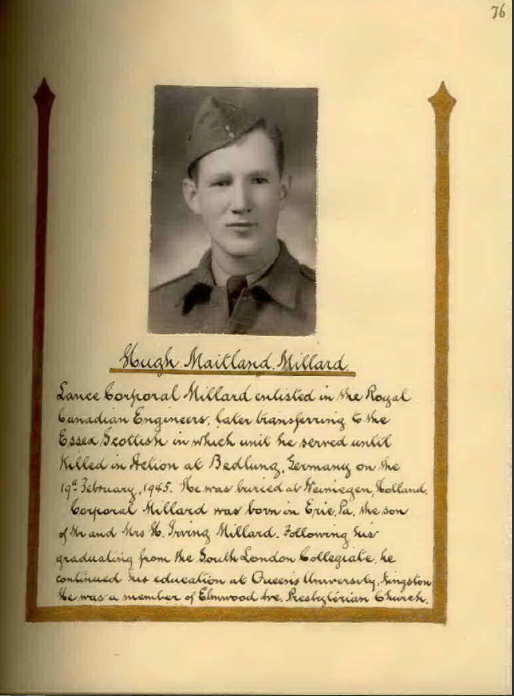 76
Hugh Maitland Millard
Lance Corporal Millard enlisted in the Royal
Canadian Engineers, later transferring to the
Essex Scottish in which unit he served until
Killed in Action at Bedlung, Germany on the
19th February, 1945. He was buried at Neimegen, Holland.
Corporal Millard was born in Erie, Pa, the son
of Mr and Mrs H. Irving Millard. Following his
graduating from the South London Collegiate, he
continued his education at Queens University, Kingston
He was a member of Elmwood Ave. Presbyterian Church.